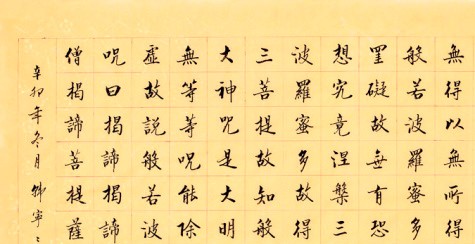 無得以無所得
般若波羅蜜多
罣礙故無有恐
想究竟涅槃三
波羅蜜多故得
三菩提故知般
大神咒是大明
無等等咒能除
虛故説般若波
咒曰揭諦揭諦
僧揭諦菩提薩
辛卯年冬月